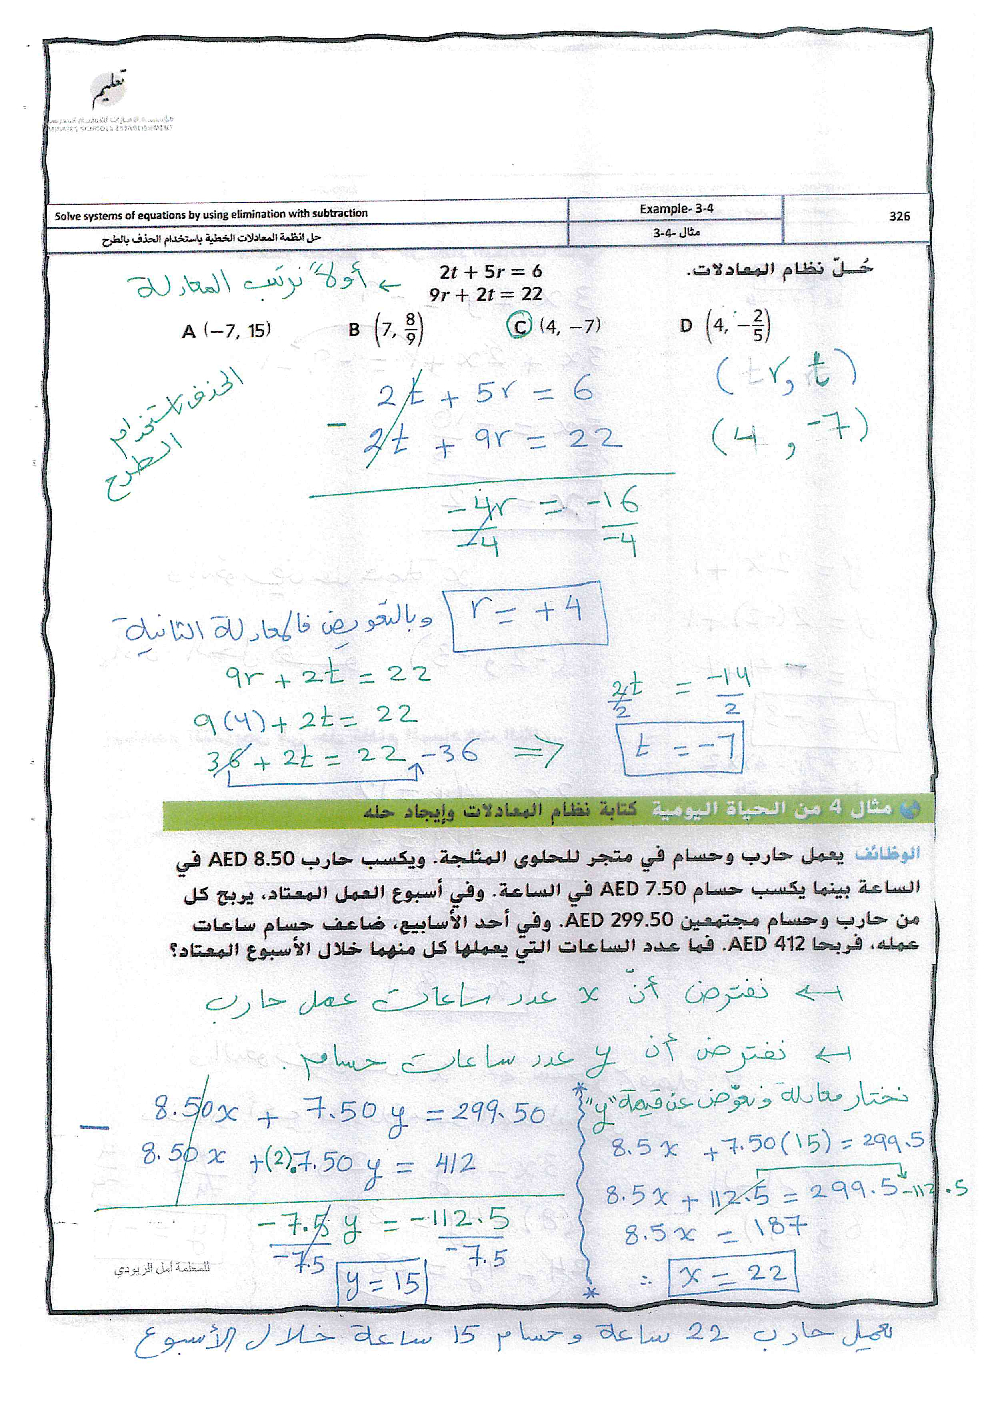 تعليم
Solve systems of equations by using elimination with subtraction
Example- 3-4
326
حل انظمة المعادلات الخطية باستخدام الحذف بالطرح
مثال -4-3
حُلّ نظام المعادلات.
2t + 5r = 6
9r + 2t = 22
← أولاً نرتب المعادلة
A (−7, 15)
B (7, 8/9)
C (4, −7)
D (4, −2/5)
الحذف باستخدام الطرح
2t + 5r = 6
− 2t + 9r = 22
−4r/−4 = −16/−4
(r, t)
(4, −7)
r = +4
وبالتعويض فالمعادلة الثانية
9r + 2t = 22
9(4) + 2t = 22
36 + 2t = 22 −36 ⇒
2t/2 = −14/2
t = −7
مثال 4 من الحياة اليومية كتابة نظام المعادلات وإيجاد حله
الوظائف يعمل حارب وحسام في متجر للحلوى المثلجة. ويكسب حارب AED 8.50 في
الساعة بينما يكسب حسام AED 7.50 في الساعة. وفي أسبوع العمل المعتاد، يربح كل
من حارب وحسام مجتمعين AED 299.50. وفي أحد الأسابيع، ضاعف حسام ساعات
عمله، فربحا AED 412. فما عدد الساعات التي يعملها كل منهما خلال الأسبوع المعتاد؟
← نفترض أنّ x عدد ساعات عمل حارب
← نفترض أن y عدد ساعات حسام .
8.50x + 7.50 y = 299.50
− 8.50 x +(2).7.50 y = 412
−7.5 y/−7.5 = −112.5/−7.5
y = 15
نختار معادلة ونعوّض عن قيمة "y"
8.5 x + 7.50(15) = 299.5
8.5x + 112.5 = 299.5 −112.5
8.5 x = 187
∴ x = 22
للمعلمة أمل الزيودي
يعمل حارب 22 ساعة وحسام 15 ساعة خلال الأسبوع